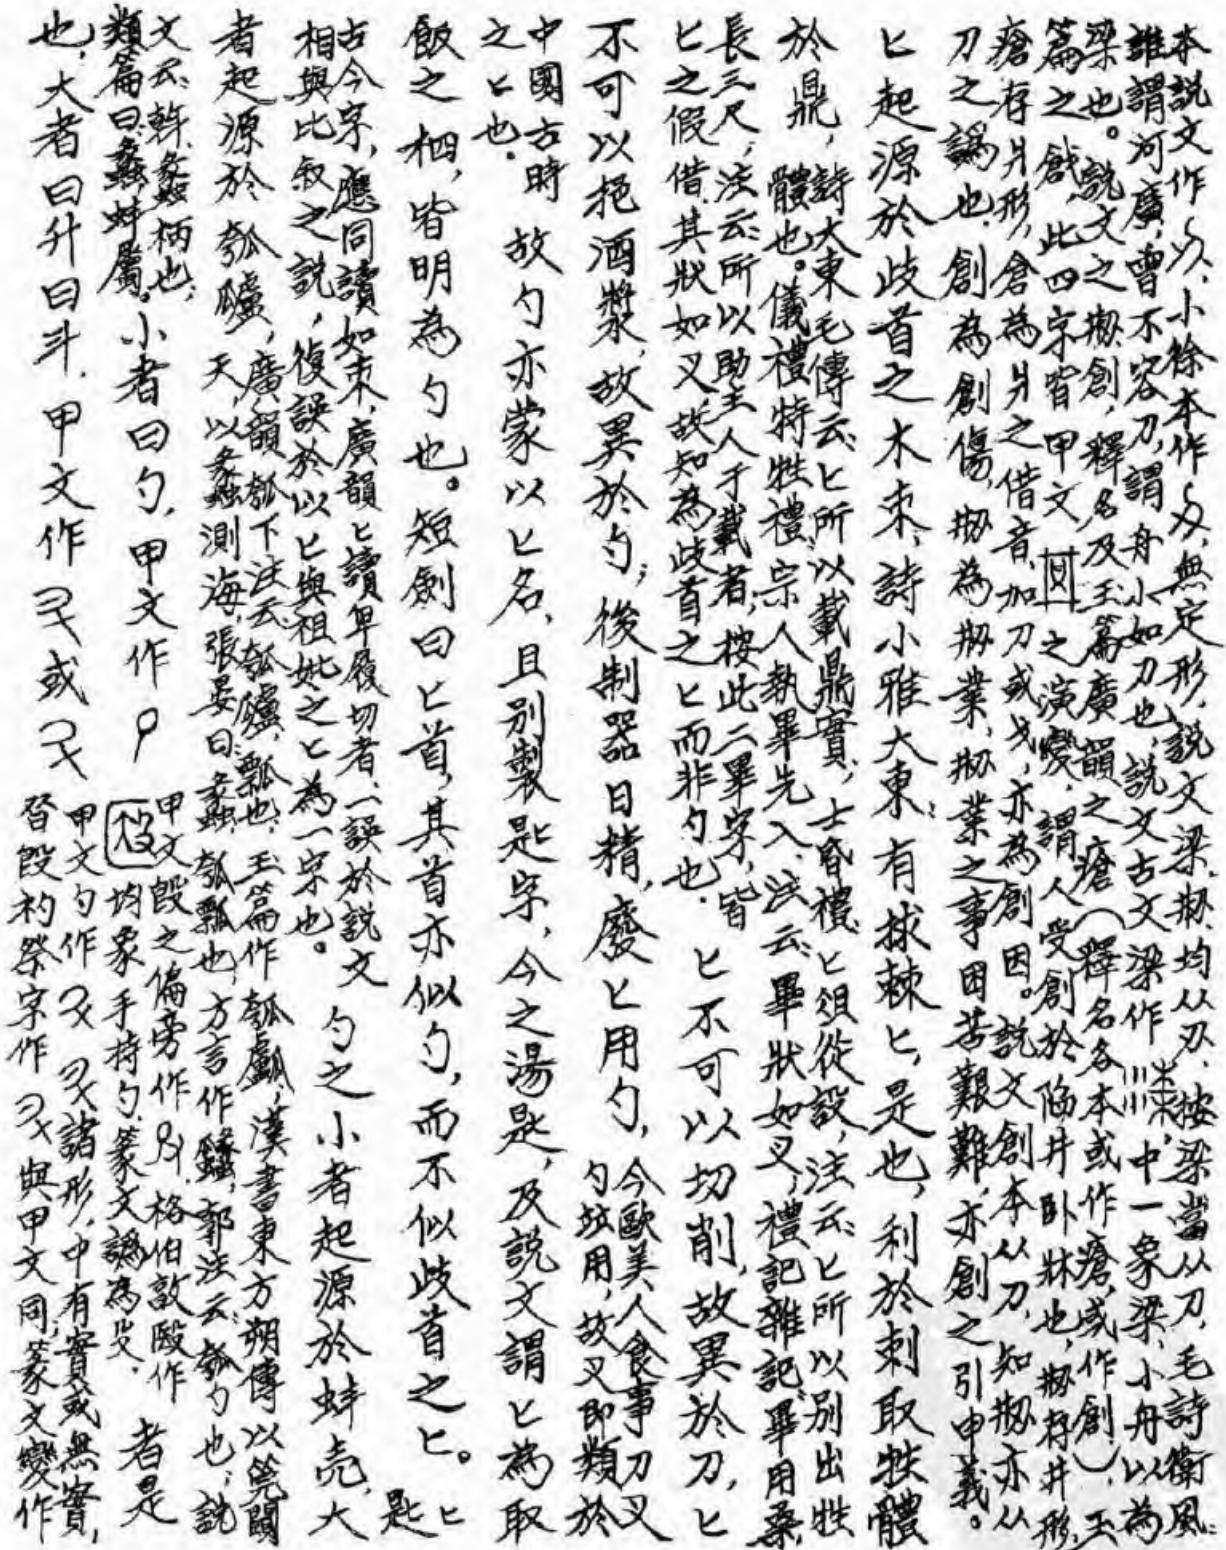 本說文作，小徐本作，無定形，說文梁、刱，均从刃，按梁當从刀，毛詩衛風：
誰謂河廣，曾不容刀，謂舟小如刀也，說文古文梁作，中一象梁，小舟以為
梁也。說文之刱創，釋名及玉篇廣韻之瘡（釋名各本或作瘡，或作創），玉
篇之戧，此四字皆甲文之演變，謂人受創於陷井臥牀也，刱存井形，
瘡存爿形，倉為爿之借音，加刀或戈，亦為創因。說文創本从刀，知刱亦从
刀之譌也，創為創傷，刱為刱業，刱業之事困苦艱難，亦創之引申義。
匕起源於歧首之木朿，詩小雅大東：有捄棘匕，是也，利於刺取牲體
於鼎，詩大東毛傳云：匕所以載鼎實，士昏禮：匕俎從設，注云：匕所以別出牲
體也。儀禮特牲禮：宗人執畢先入，注云：畢狀如叉，禮記雜記：畢用桑，
長三尺，注云：所以助主人于載者，按此二畢字，皆
匕之假借，其狀如叉，故知為歧首之匕而非勺也。匕不可以切削，故異於刀，匕
不可以挹酒漿，故異於勺；後制器日精，廢匕用勺，今歐美人食事刀叉
勺竝用，故叉即類於
中國古時
之匕也。故勺亦蒙以匕名，且別製匙字，今之湯匙，及說文謂匕為取
飯之柶，皆明為勺也。短劍曰匕首，其首亦似勺，而不似歧首之匕。匕
匙
古今字，應同讀如朿，廣韻匕讀卑履切者，一誤於說文
相與比敘之說，復誤於以匕與祖妣之匕為一字也。勺之小者起源於蚌壳，大
者起源於瓠䕡，廣韻瓠下注云：瓠䕡，瓢也，玉篇作瓠，漢書東方朔傳以筦闚
天，以蠡測海，張晏曰：蠡，瓠瓢也，方言作，郭注云：瓠勺也；說
文云：斡，蠡柄也；
類篇曰：蠡，蚌屬。小者曰勺，甲文作，甲文殷之偏旁作，格伯敦殹作
均象手持勺，篆文譌為殳。者是
也，大者曰升曰斗，甲文作或，甲文勺作諸形，中有實或無實，
昏殷礿祭字作與甲文同，篆文變作